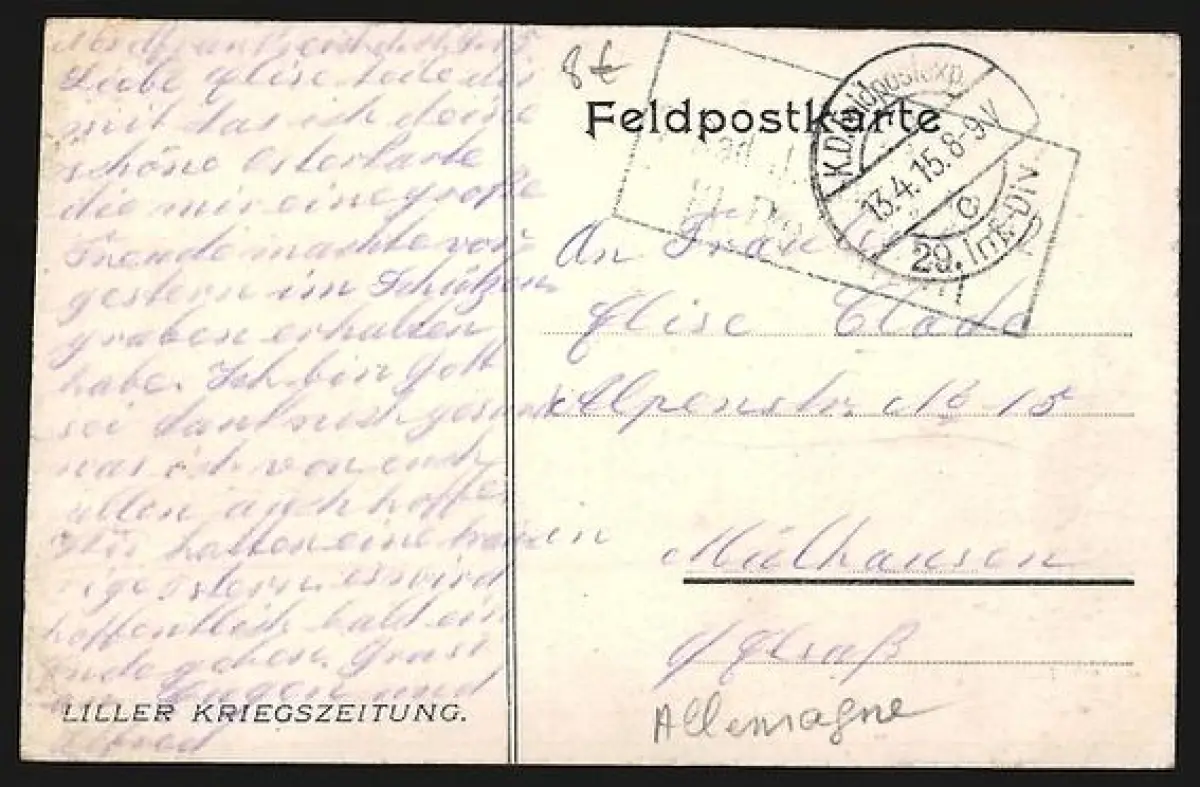 Liebe Elise teile dir
mit das ich deine
schöne Osterkarte
die mir eine große
Freude machte vor-
gestern im Schützen
graben erhalten
habe. Ich bin Gott
sei dank noch gesund
was ich von euch
allen auch hoffe
Wir hatten eine
ostern. es wird
hoffentlich bald ein
ende geben. Grus
an Eugen und
Alfred
LILLER KRIEGSZEITUNG.
8 €
Feldpostkarte
K.D. Feldpostexp.
13.4.15. 8-9 V
e
29. Inf.-Div.
An Frau
Elise
Alpenstr. No 15
in Mülhausen
i/Elsaß
Allemagne